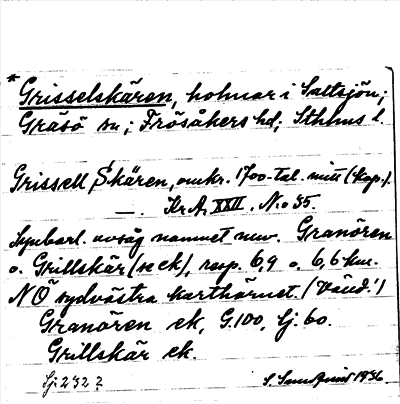 * Grisselskären, holmar i Saltsjön;
Gräsö sn; Frösåkers hd; Sthlms l.
Grissell Skären, omkr. 1700-tal. mitt (kop.).
— . Kr. A. XXII. No 35.
Synbarl. avsåg namnet nuv. Granören
o. Grillskär (se ek), resp. 6,9 o. 6,6 km.
NÖ sydvästra karthörnet. (Vänd!)
Granören ek, G. 100, Lj. 60.
Grillskär ek.
Lj. 232 ?
S. 1936